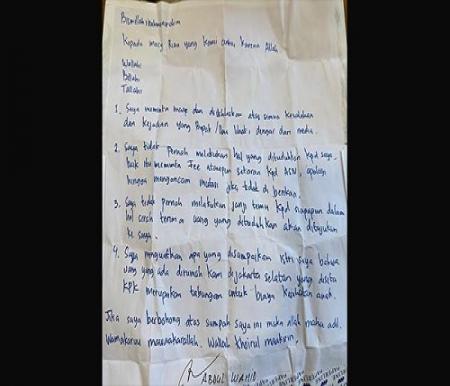 Bismillahirrahmanirrahim
Kepada masy Riau yang kami cintai karena Allah
Wallahi
Billahi
Tallahi
1. Saya meminta maaf dan disalahkan atas semua
dan kejadian yang Bapak/Ibu lihat, dengar dari media.
2. Saya tidak pernah melakukan hal yang dituduhkan kpd saya.
Baik itu meminta Fee ataupun setoran kpd ASN, apalagi
hingga mengancam mutasi jika tidak di berikan.
3. Saya tidak pernah melakukan janji temu kpd siapapun dalam
hal serah terima uang yang dituduhkan akan ditujukan
ke saya.
4. Saya menguatkan apa yang disampaikan istri saya bahwa
uang yang ada dirumah kami di jakarta selatan yang disita
KPK merupakan tabungan untuk biaya kesehatan anak.
Jika saya berbohong atas sumpah saya ini maka Allah maha adil.
Wamakaruu wamakarallah. Wallahu khoirul maakirin.
ABDUL WAHID